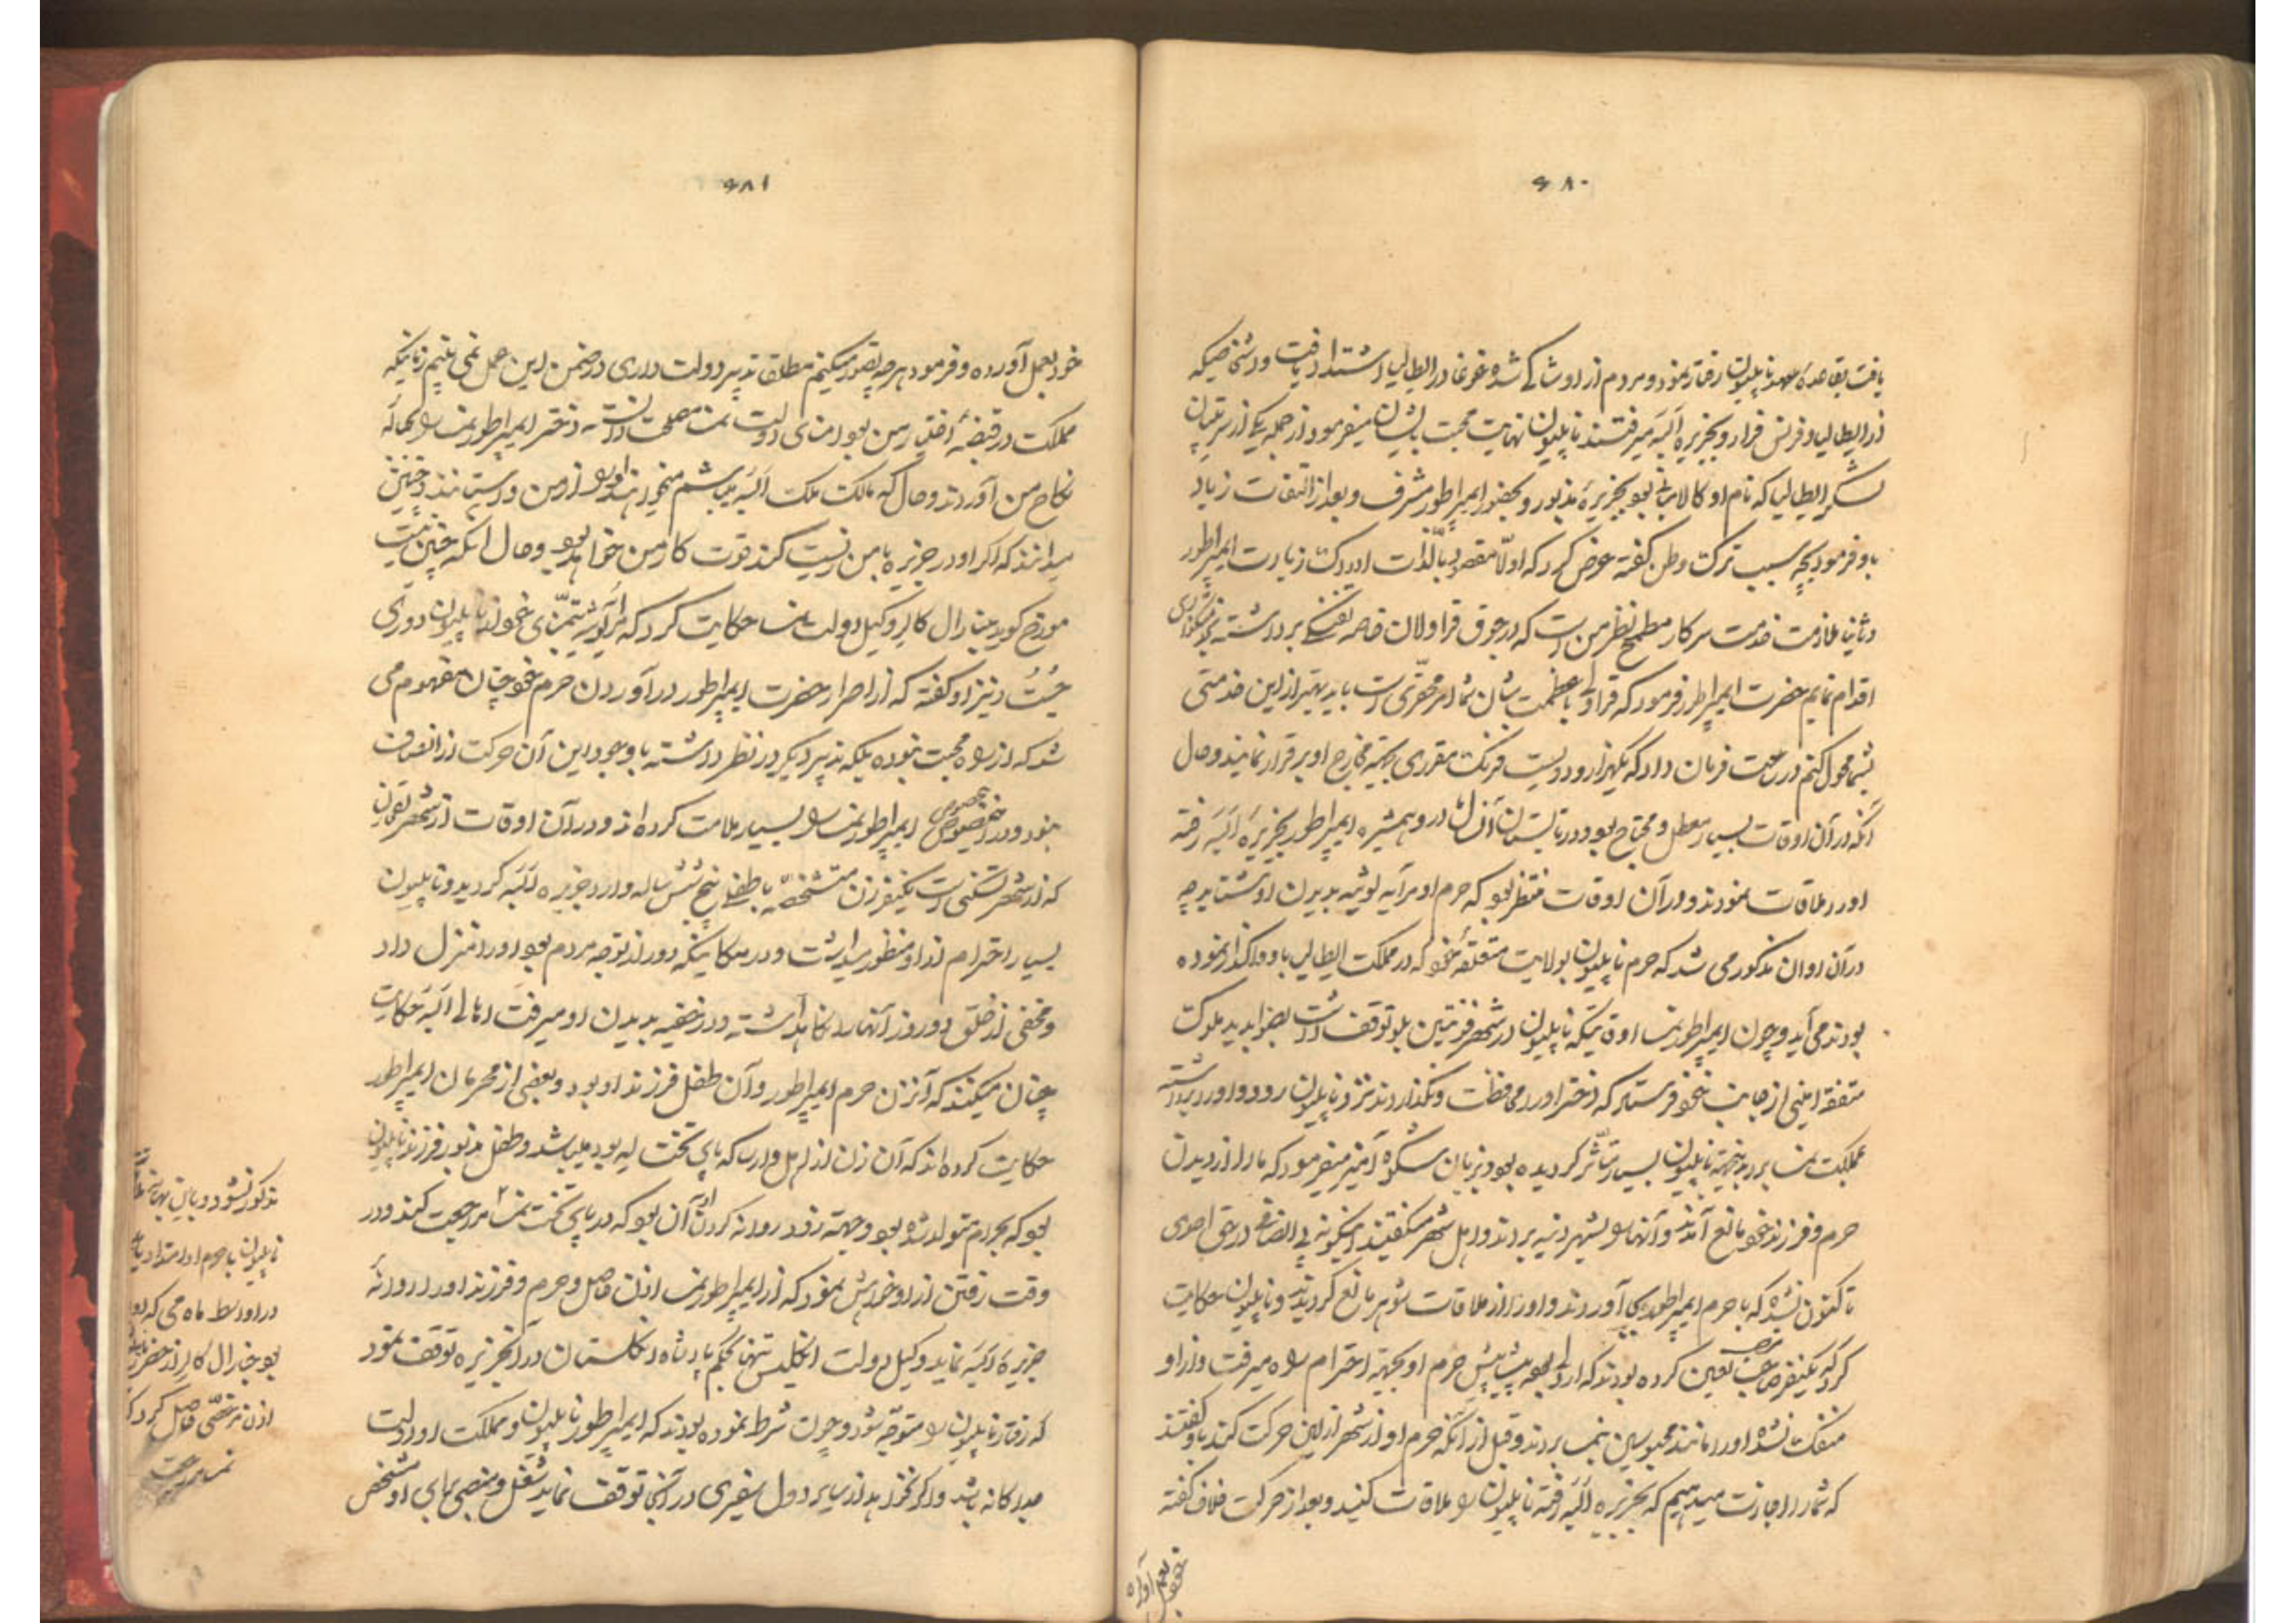 ۶۸۰
یافت بقاعدهٔ عهد ناپلیون رفتار نمود و مردم از او شاکی شده غوغا در ایطالیا اشتداد یافت و اشخاصیکه
از ایطالیا و فرنس فرار و بجزیره البه میرفتند ناپلیون نهایت محبت بایشان میفرمود از جمله یکی از سرتیپان
لشکر ایطالیا که نام او کالابانی بود بجزیرهٔ مذبور و بحضور ایمپراطور مشرف و بعد از التفات زیاد
باو فرمود بچه سبب ترک وطن گفته عرض کرد که اولا مقصود بالذات ادراک زیارت ایمپراطور
و ثانیا ملازمت خدمت سرکار مطمح نظر من است که در جوق قراولان خاصه تفنگی برداشته
اقدام نمایم حضرت ایمپراطور فرمود که قراولی با عظمت شان شما امر محقری است باید بهتر از این خدمتی
بشما محول کنم در ساعت فرمان داد که یکهزار و دویست فرنک مقرری بجهة مخارج او برقرار نمایند و حال
آنکه در آن اوقات بسیار معطل و محتاج بود و در تابستان آنسال مادر و همشیره ایمپراطور بجزیرهٔ البه رفته
او را ملاقات نمودند و در آن اوقات منتظر بود که حرم او مرایه لوئیه بدیدن او شتابد چه
در آن اوان مذکور می شد که حرم ناپلیون بولایت متعلقهٔ خود که در مملکت ایطالیا باو واگذار نموده
بودند می آید و چون ایمپراطور نمسا اوقاتیکه ناپلیون در شهر فونتین بلو توقف داشت بصوابدید ملوک
متفقه ایلچی از جانب خود فرستاد که دختر او را محافظت و نگذارند نزد ناپلیون رود و او را برداشته
بمملکت نمسا برد بدینجهة ناپلیون بسیار متأثر گردیده بود و بزبان شکوه آمیز میفرمود که مارا از دیدن
حرم و فرزند خود مانع آمدند و آنها را بشهر دنیه بردند و اهل شهر میگفتند اینگونه بی انصافی در حق احدی
تا کنون نشده که با حرم ایمپراطور بجا آوردند و او را از ملاقات شوهر مانع گردیدند و ناپلیون حکایت
کرد که یکنفر صاحب منصب تعین کرده بودند که پیشاپیش حرم او بجهة احترام راه میرفت و از او
منفک نشده او را مانند محبوسین بنمسا بردند و قبل از آنکه حرم او از شهر ارلین حرکت کند باو گفتند
که شما را اجازت میدهیم که بجزیره البه رفته ناپلیون را ملاقات کنید و بعد از حرکت خلاف گفته
خود بعمل آورده
۶۸۱
خود بعمل آورده و فرمود هرچه تصور میکنم مطلقا تدبیر دولت داری در ضمن این عمل نمی بینم زمانیکه
مملکت در قبضهٔ اختیار من بود امنای دولت نمسا مصلحت دانسته دختر ایمپراطور نمسا را بحباله
نکاح من آوردند و حال که مالک ملک البه میباشم میخواهند او را از من واستانند و چنین
میدانند که اگر او در جزیره با من زیست کند قوت کار من خواهد بود و حال آنکه چنین نیست
مورخ گوید جنارال کالر وکیل دولت نمسا حکایت کرد که مرایه لوئیه بتمنای خود از ناپلیون دوری
جست و نیز او گفته که از اصرار حضرت ایمپراطور در آوردن حرم خود چنان مفهوم می
شد که از راه محبت نبوده بلکه تدبیر دیگر در نظر داشته با وجود این آن حرکت از انصاف
نبود و در این خصوص ایمپراطور نمسا را بسیار ملامت کرده اند و در آن اوقات از شهر
که از شهر تسکنی است یکنفر زن مشخصه با طفلی پنج شش ساله وارد جزیره البه گردید و ناپلیون
بسیار احترام از او منظور میداشت و در مکانیکه دور از توجه مردم بود او را منزل داد
و مخفی از خلق دو روز آنها را نگاهداشته و در خفیه بدیدن او میرفت اهالی البه حکایت
چنان میکنند که آنزن حرم ایمپراطور و آن طفل فرزند او بود و بعضی از محرمان ایمپراطور
حکایت کرده اند که آن زن از اهل وارسا که پای تخت لیه بود میباشد و طفل مذبور فرزند ناپلیون
بود که بحرام متولد شده بود و جهة زود روانه کردن او آن بود که در پای تخت نمسا مراجعت کند و در
وقت رفتن از او خواهش نمود که از ایمپراطور نمسا اذن حاصل و حرم و فرزند او را روانه
جزیرهٔ البه نماید وکیل دولت انگلیس تنها بحکم پادشاه انگلستان در آن جزیره توقف نمود
که رفتار ناپلیون را متوجه شود و چون شرط نموده بودند که ایمپراطور ناپلیون و مملکت او دولت
جداگانه باشد و اگر نخواهد از سایر دول سفیری در آنجا توقف نماید شغل و منصبی برای او مشخص
مذکور نشود
ناپلیون با حرم او
در اواسط ماه می که
بود جنارال کالر از حضرت
اذن مرخصی حاصل کرد